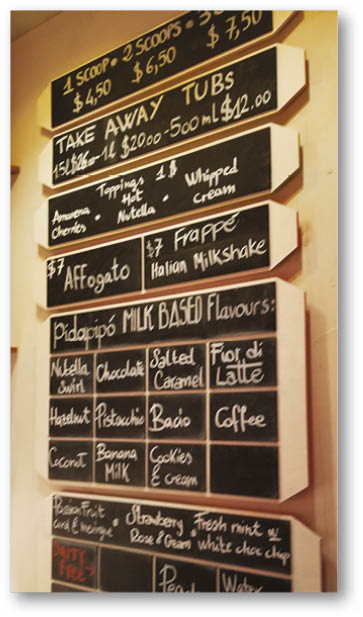 1 SCOOP = 2 SCOOPS = 3
$4,50 $6,50 $7,50
TAKE AWAY TUBS
1.5l $26.00 - 1l $20.00 - 500ml $12.00
Toppings 1$
Amarena Cherries • Hot Nutella • Whipped cream
$7 Affogato
$7 Frappé
Italian Milkshake
Pidapipó MILK BASED Flavours:
Nutella Swirl Chocolate Salted Caramel Fior di Latte
Hazelnut Pistacchio Bacio Coffee
Coconut Banana Milk Cookies & cream
Passion Fruit curd & meringue • Strawberry Rose & Cream • Fresh mint w white choc chip
DAIRY FREE →
Water